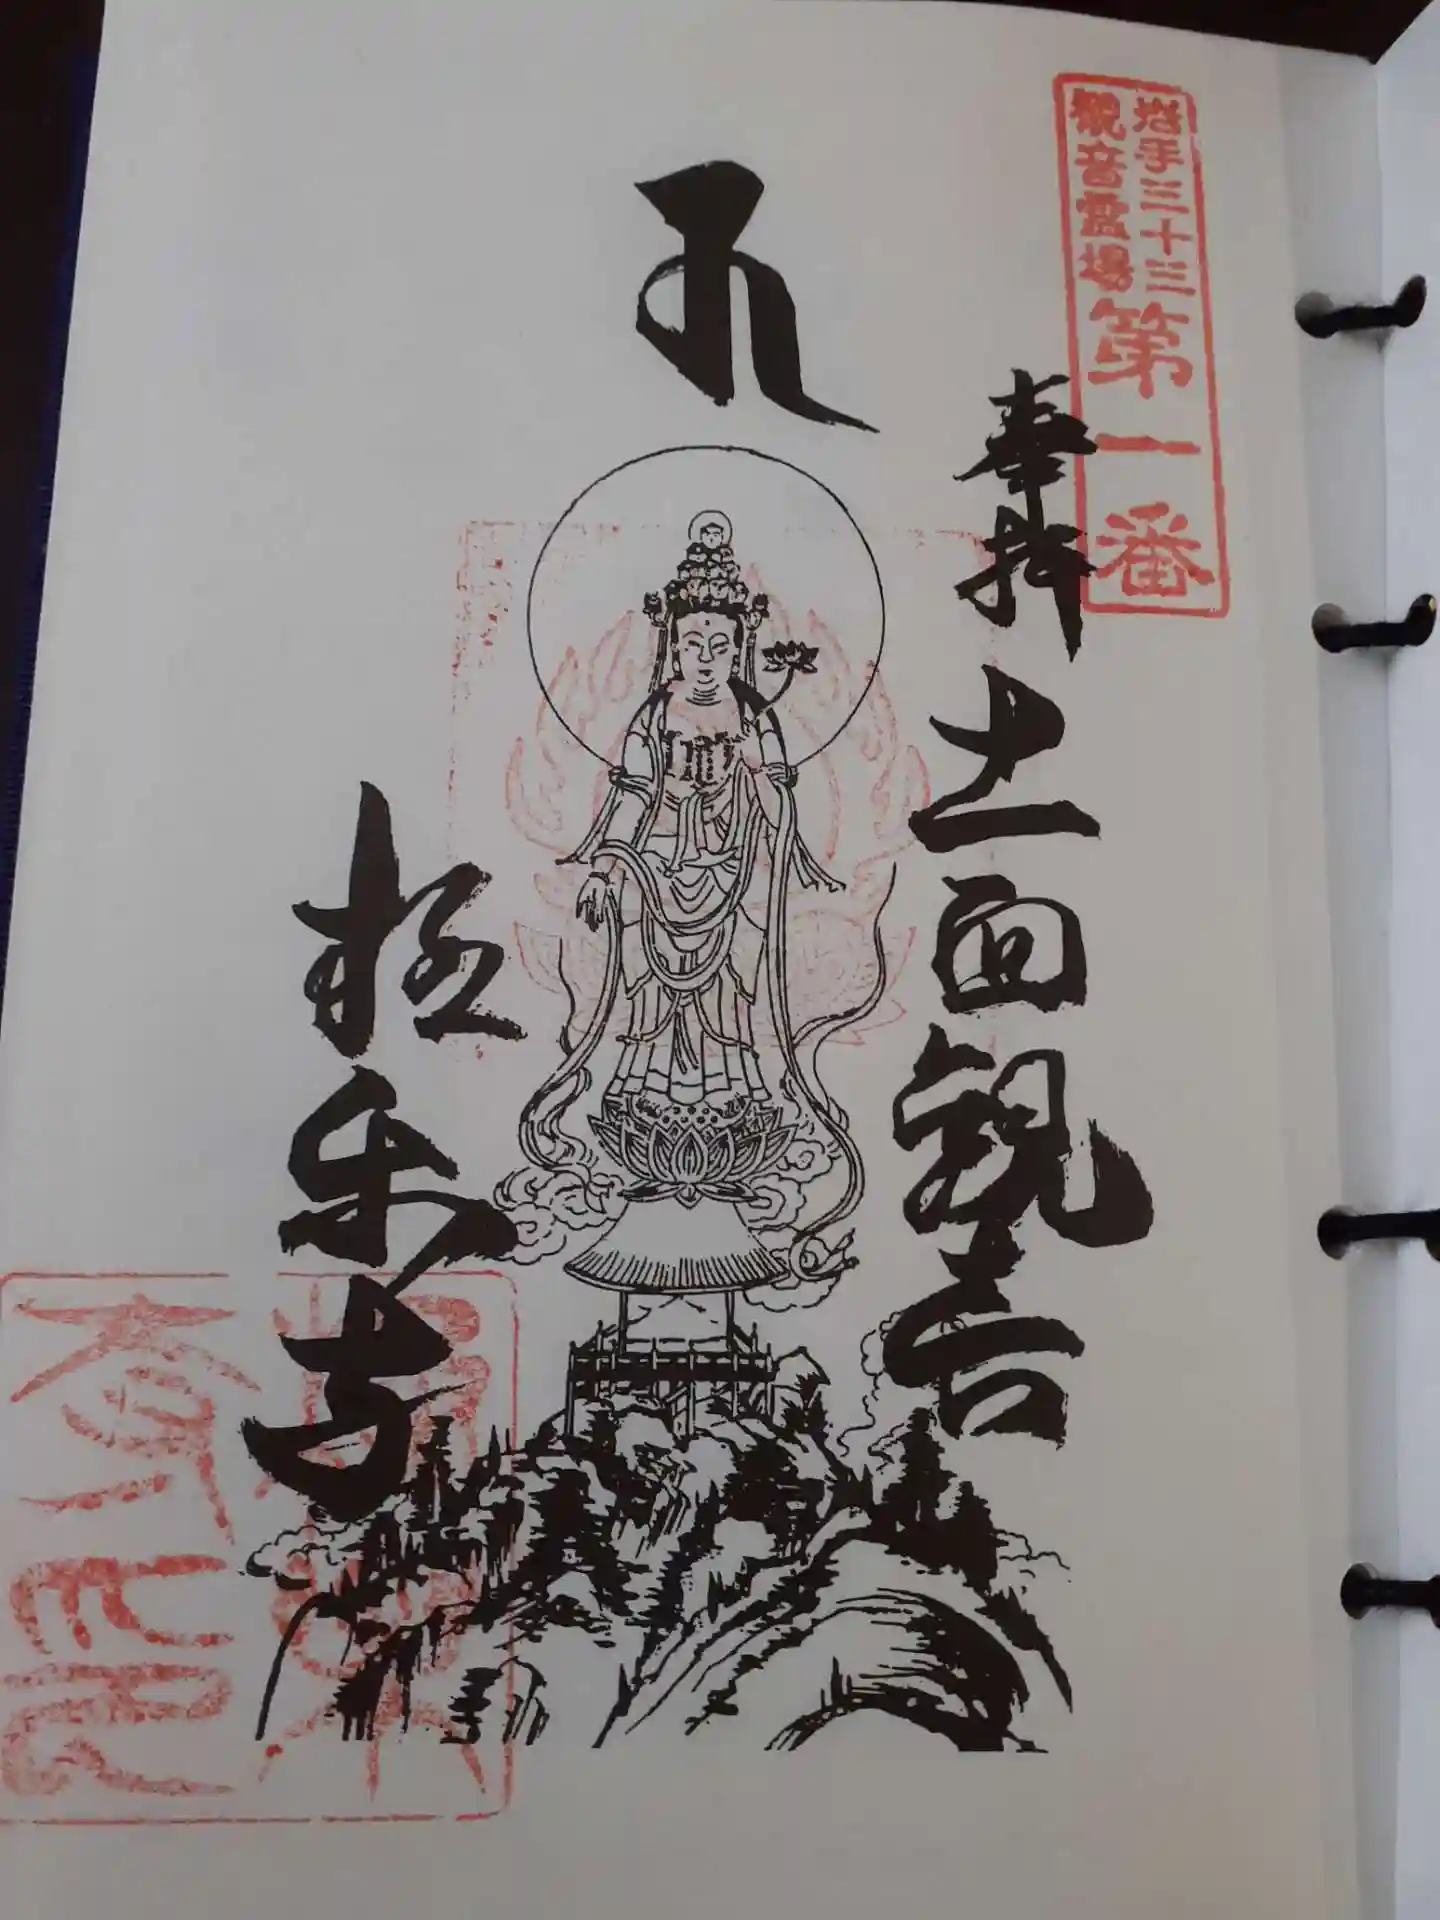 岩手三十三
觀音霊場
第一番
奉拝
十一面観音
極楽寺